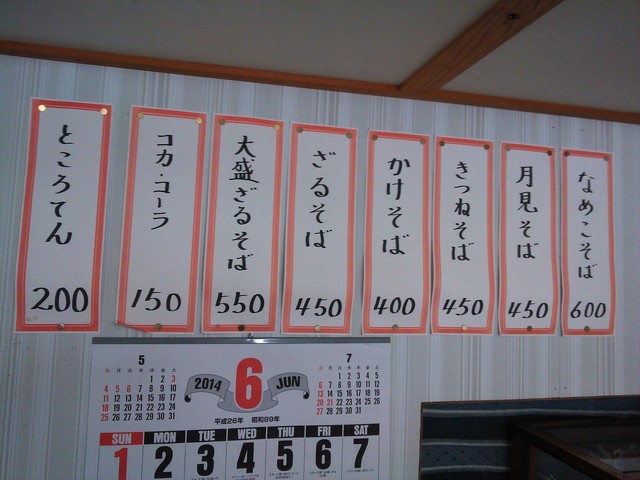 ところてん
200
コカ・コーラ
150
大盛ざるそば
550
ざるそば
450
かけそば
400
きつねそば
450
月見そば
450
なめこそば
600
5
日 月 火 水 木 金 土
1 2 3
4 5 6 7 8 9 10
11 12 13 14 15 16 17
18 19 20 21 22 23 24
25 26 27 28 29 30 31
2014 6 JUN
平成26年 昭和89年
7
日 月 火 水 木 金 土
1 2 3 4 5
6 7 8 9 10 11 12
13 14 15 16 17 18 19
20 21 22 23 24 25 26
27 28 29 30 31
SUN MON TUE WED THU FRI SAT
1 2 3 4 5 6 7